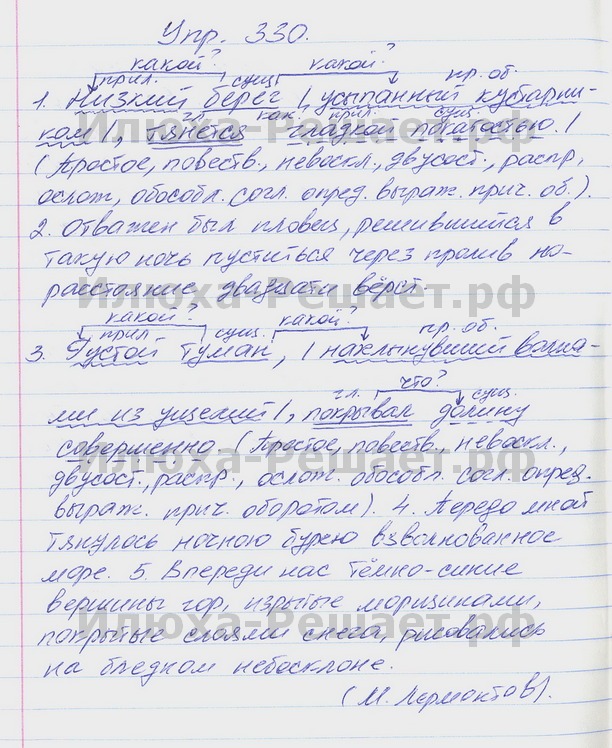 Упр. 330.
какой? какой?
прил. сущ. пр. об.
1. Низкий берег |, усыпанный кустарни-
гл. как. прил. сущ.
ком |, тянется гладкой покатостью. |
(Простое, повеств., невоскл., двусост., распр.,
ослож., обособл. согл. опред. выраж. прич. об.).
2. Отважен был пловец, решившийся в
такую ночь пуститься через пролив на
расстояние двадцати вёрст.
какой? какой?
прил. сущ. пр. об.
3. Густой туман, | нахлынувший волна-
что?
гл. сущ.
ми из ущелий |, покрывал долину
совершенно. (Простое, повеств., невоскл.,
двусост., распр., ослож. обособл. согл. опред.
выраж. прич. оборотом). 4. Передо мной
тянулось ночною бурею взволнованное
море. 5. Впереди нас тёмно-синие
вершины гор, изрытые морщинами,
покрытые слоями снега, рисовались
на бледном небосклоне.
(М. Лермонтов).
Илюха-Решает.рф
Илюха-Решает.рф
Илюха-Решает.рф
Илюха-Решает.рф